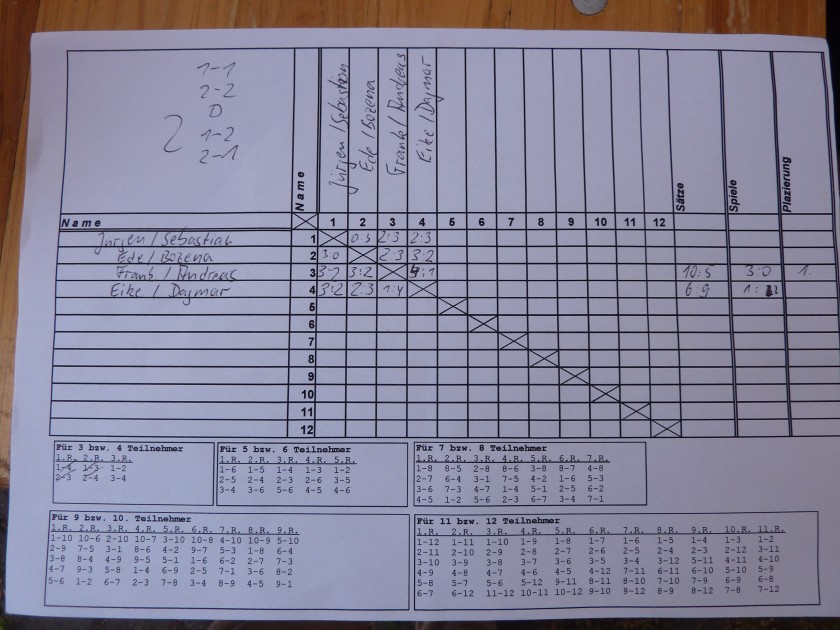 1-1
2-2
D
2
1-2
2-1
Name
Jürgen / Sebastian
Ede / Bozena
Frank / Andreas
Eike / Dagmar
Sätze
Spiele
Plazierung
Name 1 2 3 4 5 6 7 8 9 10 11 12
Jürgen / Sebastian 1 0:3 2:3 2:3
Ede / Bozena 2 3:0 2:3 3:2
Frank / Andreas 3 3:2 3:2 4:1 10:5 3:0 1.
Eike / Dagmar 4 3:2 2:3 1:4 6:9 1:2
5
6
7
8
9
10
11
12
Für 3 bzw. 4 Teilnehmer
1.R. 2.R. 3.R.
1-4 1-3 1-2
2-3 2-4 3-4
Für 5 bzw. 6 Teilnehmer
1.R. 2.R. 3.R. 4.R. 5.R.
1-6 1-5 1-4 1-3 1-2
2-5 2-4 2-3 2-6 3-5
3-4 3-6 5-6 4-5 4-6
Für 7 bzw. 8 Teilnehmer
1.R. 2.R. 3.R. 4.R. 5.R. 6.R. 7.R.
1-8 8-5 2-8 8-6 3-8 8-7 4-8
2-7 6-4 3-1 7-5 4-2 1-6 5-3
3-6 7-3 4-7 1-4 5-1 2-5 6-2
4-5 1-2 5-6 2-3 6-7 3-4 7-1
Für 9 bzw. 10. Teilnehmer
1.R. 2.R. 3.R. 4.R. 5.R. 6.R. 7.R. 8.R. 9.R.
1-10 10-6 2-10 10-7 3-10 10-8 4-10 10-9 5-10
2-9 7-5 3-1 8-6 4-2 9-7 5-3 1-8 6-4
3-8 8-4 4-9 9-5 5-1 1-6 6-2 2-7 7-3
4-7 9-3 5-8 1-4 6-9 2-5 7-1 3-6 8-2
5-6 1-2 6-7 2-3 7-8 3-4 8-9 4-5 9-1
Für 11 bzw. 12 Teilnehmer
1.R. 2.R. 3.R. 4.R. 5.R. 6.R. 7.R. 8.R. 9.R. 10.R. 11.R.
1-12 1-11 1-10 1-9 1-8 1-7 1-6 1-5 1-4 1-3 1-2
2-11 2-10 2-9 2-8 2-7 2-6 2-5 2-4 2-3 2-12 3-11
3-10 3-9 3-8 3-7 3-6 3-5 3-4 3-12 5-11 4-11 4-10
4-9 4-8 4-7 4-6 4-5 4-12 7-11 6-11 6-10 5-10 5-9
5-8 5-7 5-6 5-12 9-11 8-11 8-10 7-10 7-9 6-9 6-8
6-7 6-12 11-12 10-11 10-12 9-10 9-12 8-9 8-12 7-8 7-12